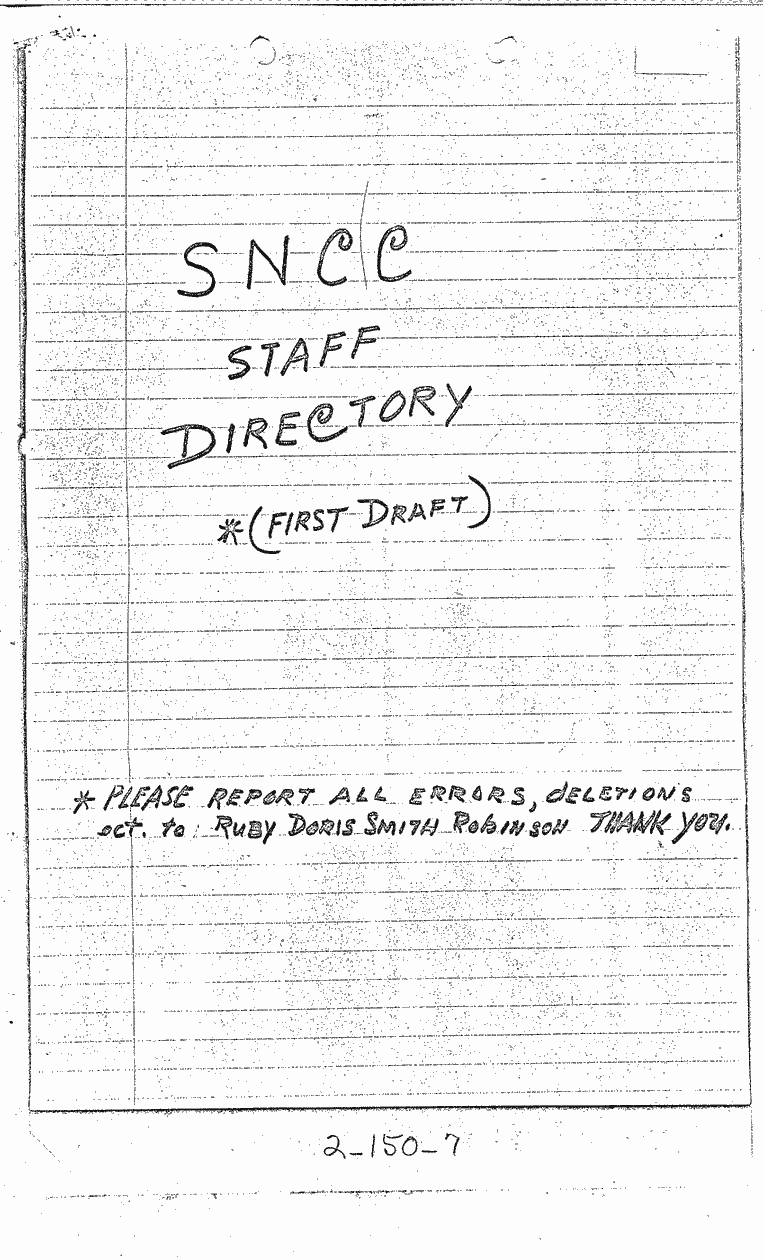 SNCC
STAFF
DIRECTORY
*(FIRST DRAFT)
* PLEASE REPORT ALL ERRORS, dELETIONS
ect. to: RUBY DORIS SMITH RobINSON THANK YOU.
2-150-7